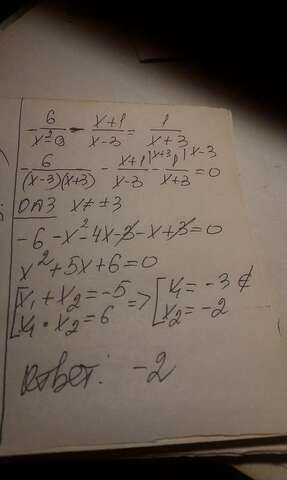 -6/(x²-9) - (x+1)/(x-3) = 1/(x+3)
-6/((x-3)(x+3)) - (x+1)/(x-3) |x+3 - 1/(x+3) |x-3 = 0
ОДЗ x ≠ ±3
-6-x²-4x-3-x+3=0
x²+5x+6=0
[x₁+x₂=-5 => [x₁=-3 ∉
[x₁·x₂=6 [x₂=-2
Ответ: -2